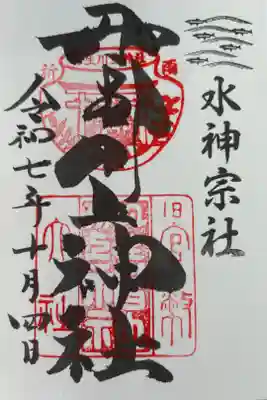 水神宗社
丹生川上神社
令和七年十月四日